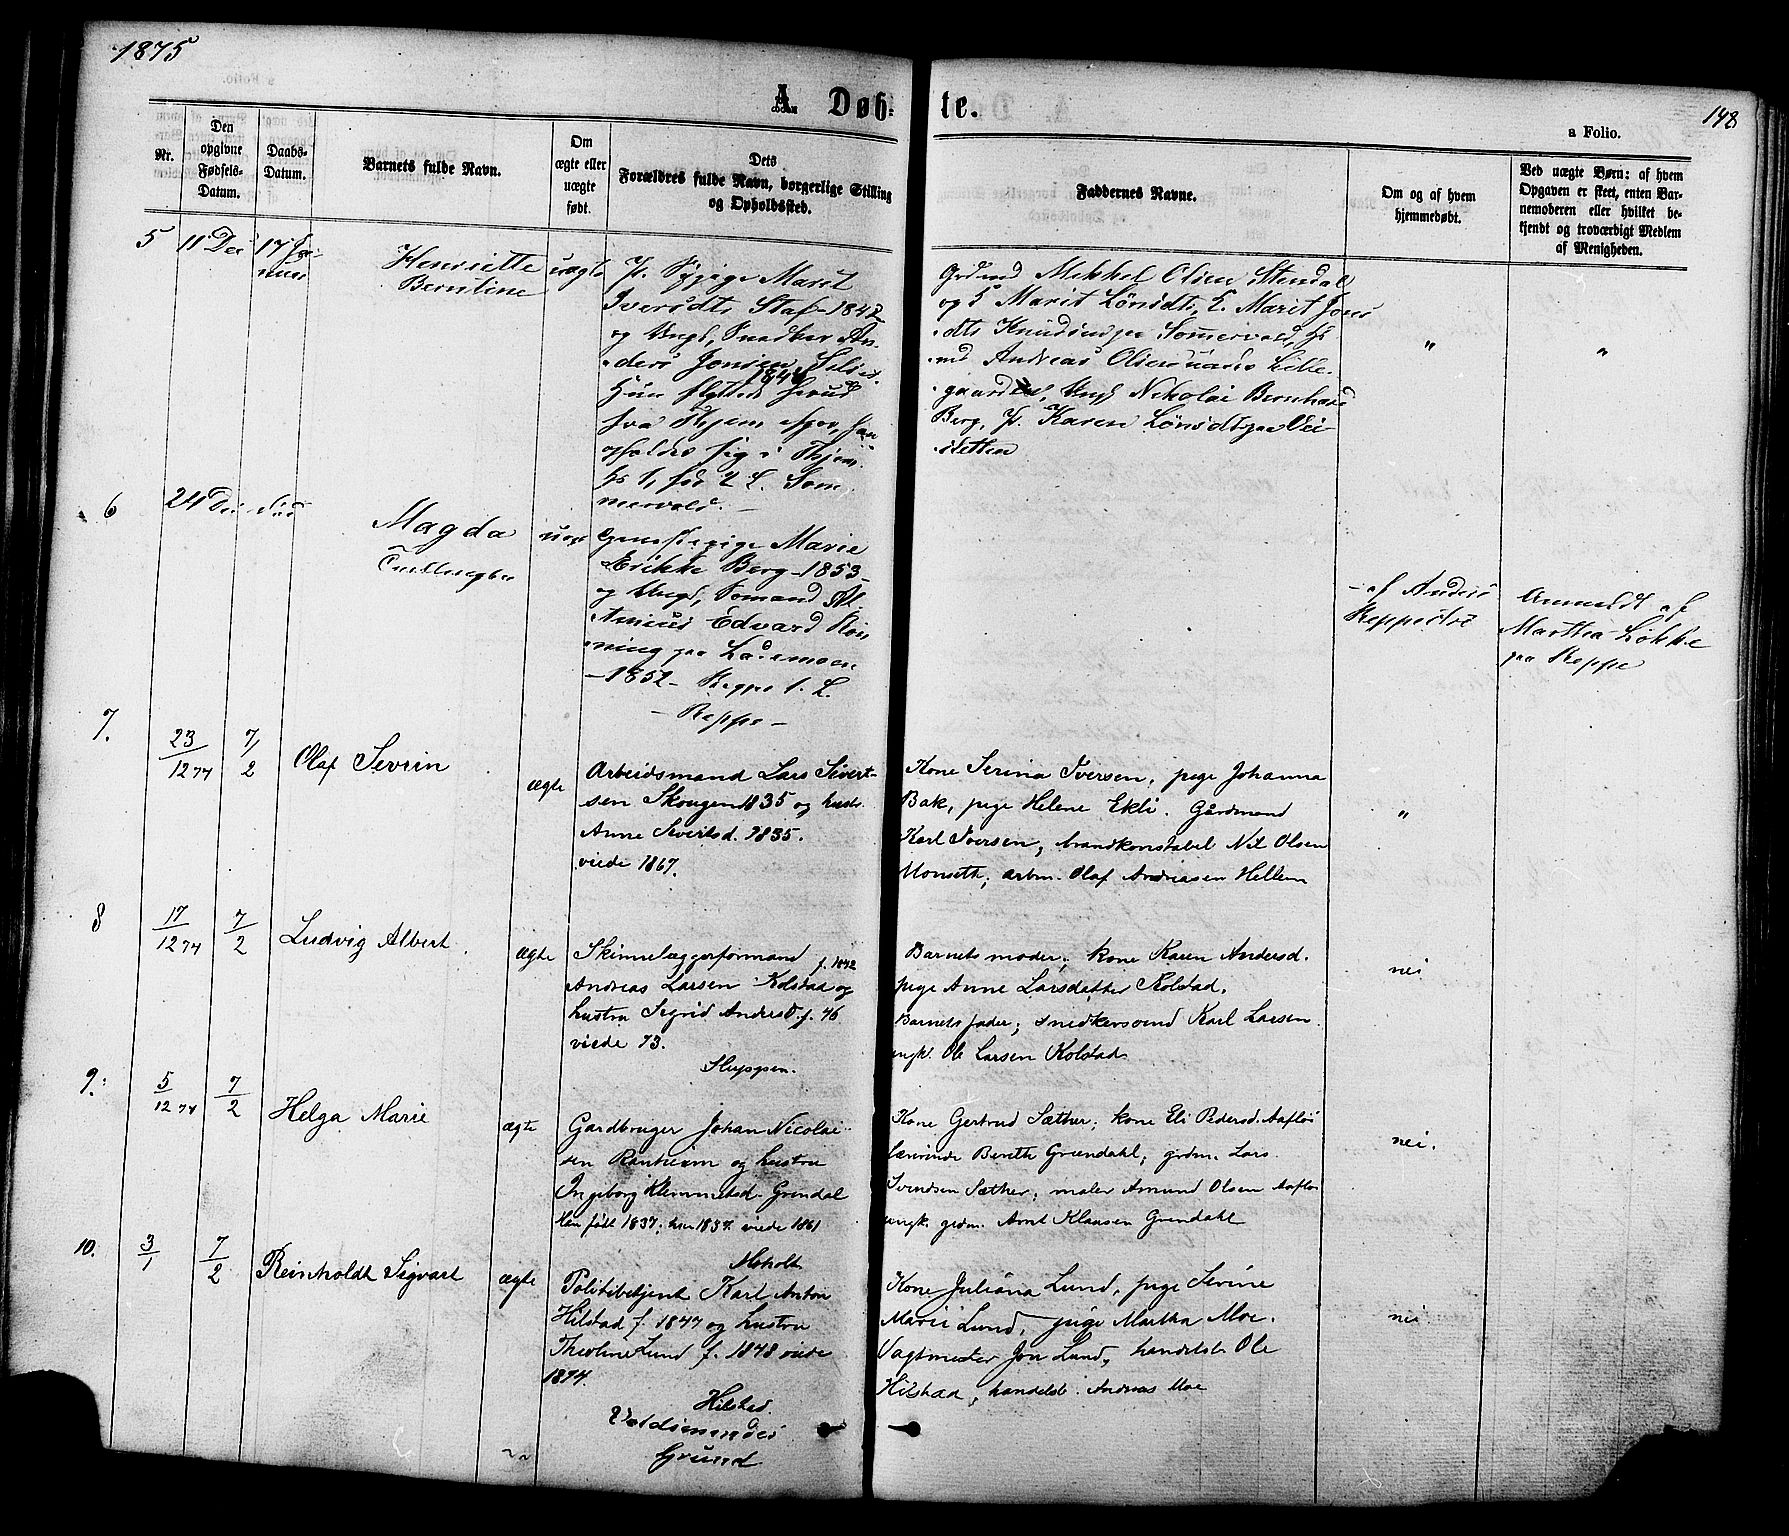 1875
A. Døb- te.
148
a Folio.
Nr.
Den opgivne Fødsels-Datum.
Daabs-Datum.
Barnets fulde Navn.
Om ægte eller uægte født.
Dets Forældres fulde Navn, borgerlige Stilling og Opholdssted.
Faddernes Navne.
Om og af hvem hjemmedøbt.
Ved uægte Børn: af hvem Opgaven er skeet, enten Barnemoderen eller hvilket bekjendt og troværdigt Medlem af Menigheden.
5
11 Dec
17 Ja-
nuar
Henriette
Berntine
uægte
P. Pige Marit
Iversdtr Staf - 1842
og Ungk, Snedker An-
ders Jonsen
1848
Hun flyttede
fra Hjem
opholder sig i
L. Som-
mervold. -
Grdmd Mikkel Olsen Stendal
og H Marit Lönsdtr, E. Marit Jons-
dtr paa Sommervold,
md Andreas Olsen Lille-
gaard, Ungk Nikolai Bernhard
Berg, P. Karen Lönsdtr
sletten
"
"
6
24 Dec
Magda
Tvillingbr
uægte
Marie
Erikke Berg - 1853 -
og Ungk, Sømand
Edvard Røn-
ning paa Lademoen
- 1852 - Reppe 1. L.
- Reppe -
- af Anders
Anmeldt af
Martha Løkke
paa Reppe
7.
23/12 74
7/2
Olaf Sevrin
ægte
Arbeidsmand Lars Sivert-
sen Skougen 1835 og hustr.
Anne Sivertsd. 1835.
viede 1867.
Kone Serina Iversen, pige Johanna
Bak, pige Helene Ekli. Gårdmand
Karl Iversen, brandkonstabel Nil Olsen
Monseth, arbm. Olaf Andreasen Hellem
"
8
17/12 74
7/2
Ludvig Albert
ægte
Skinnelæggerformand f. 1842
Andreas Larsen Kolstad og
hustru Sigrid Andersd. f. 46
viede 73.
Sluppen.
Barnets moder, kone Karen Andersd.
pige Anne Larsdatter Kolstad.
Barnets fader, snedkersvend Karl Larsen
ungk. Ole Larsen Kolstad
nei
9.
5/12 74
7/2
Helga Marie
ægte
Gardbruger Johan Nicolai-
sen Ranheim og hustru
Ingeborg Klemmetsd. Grendal
Han født 1837. hun 1837. viede 1861
Moholt
Kone Gertrud Sæther, kone Eli Pedersd. Aafløi
lærerinde Berethe Grendahl, grdm. Lars
Svendsen Sæther, maler Amund Olsen Aafløi
ungk. grdm. Arnt Klausen Grendahl
nei.
10.
3/1
7/2
Reinholdt Sigvart
ægte
Politibetjent Karl Anton
Hilstad f. 1847 og hustru
Theoline Lund f. 1848 viede
1874.
Hilstad.
Grund
Kone Juliana Lund, pige Sevrine
Marie Lund, pige Martha Moe.
Vagtmester Jon Lund, handelsb. Ole
Hilstad, handelsb. Andreas Moe
nei.